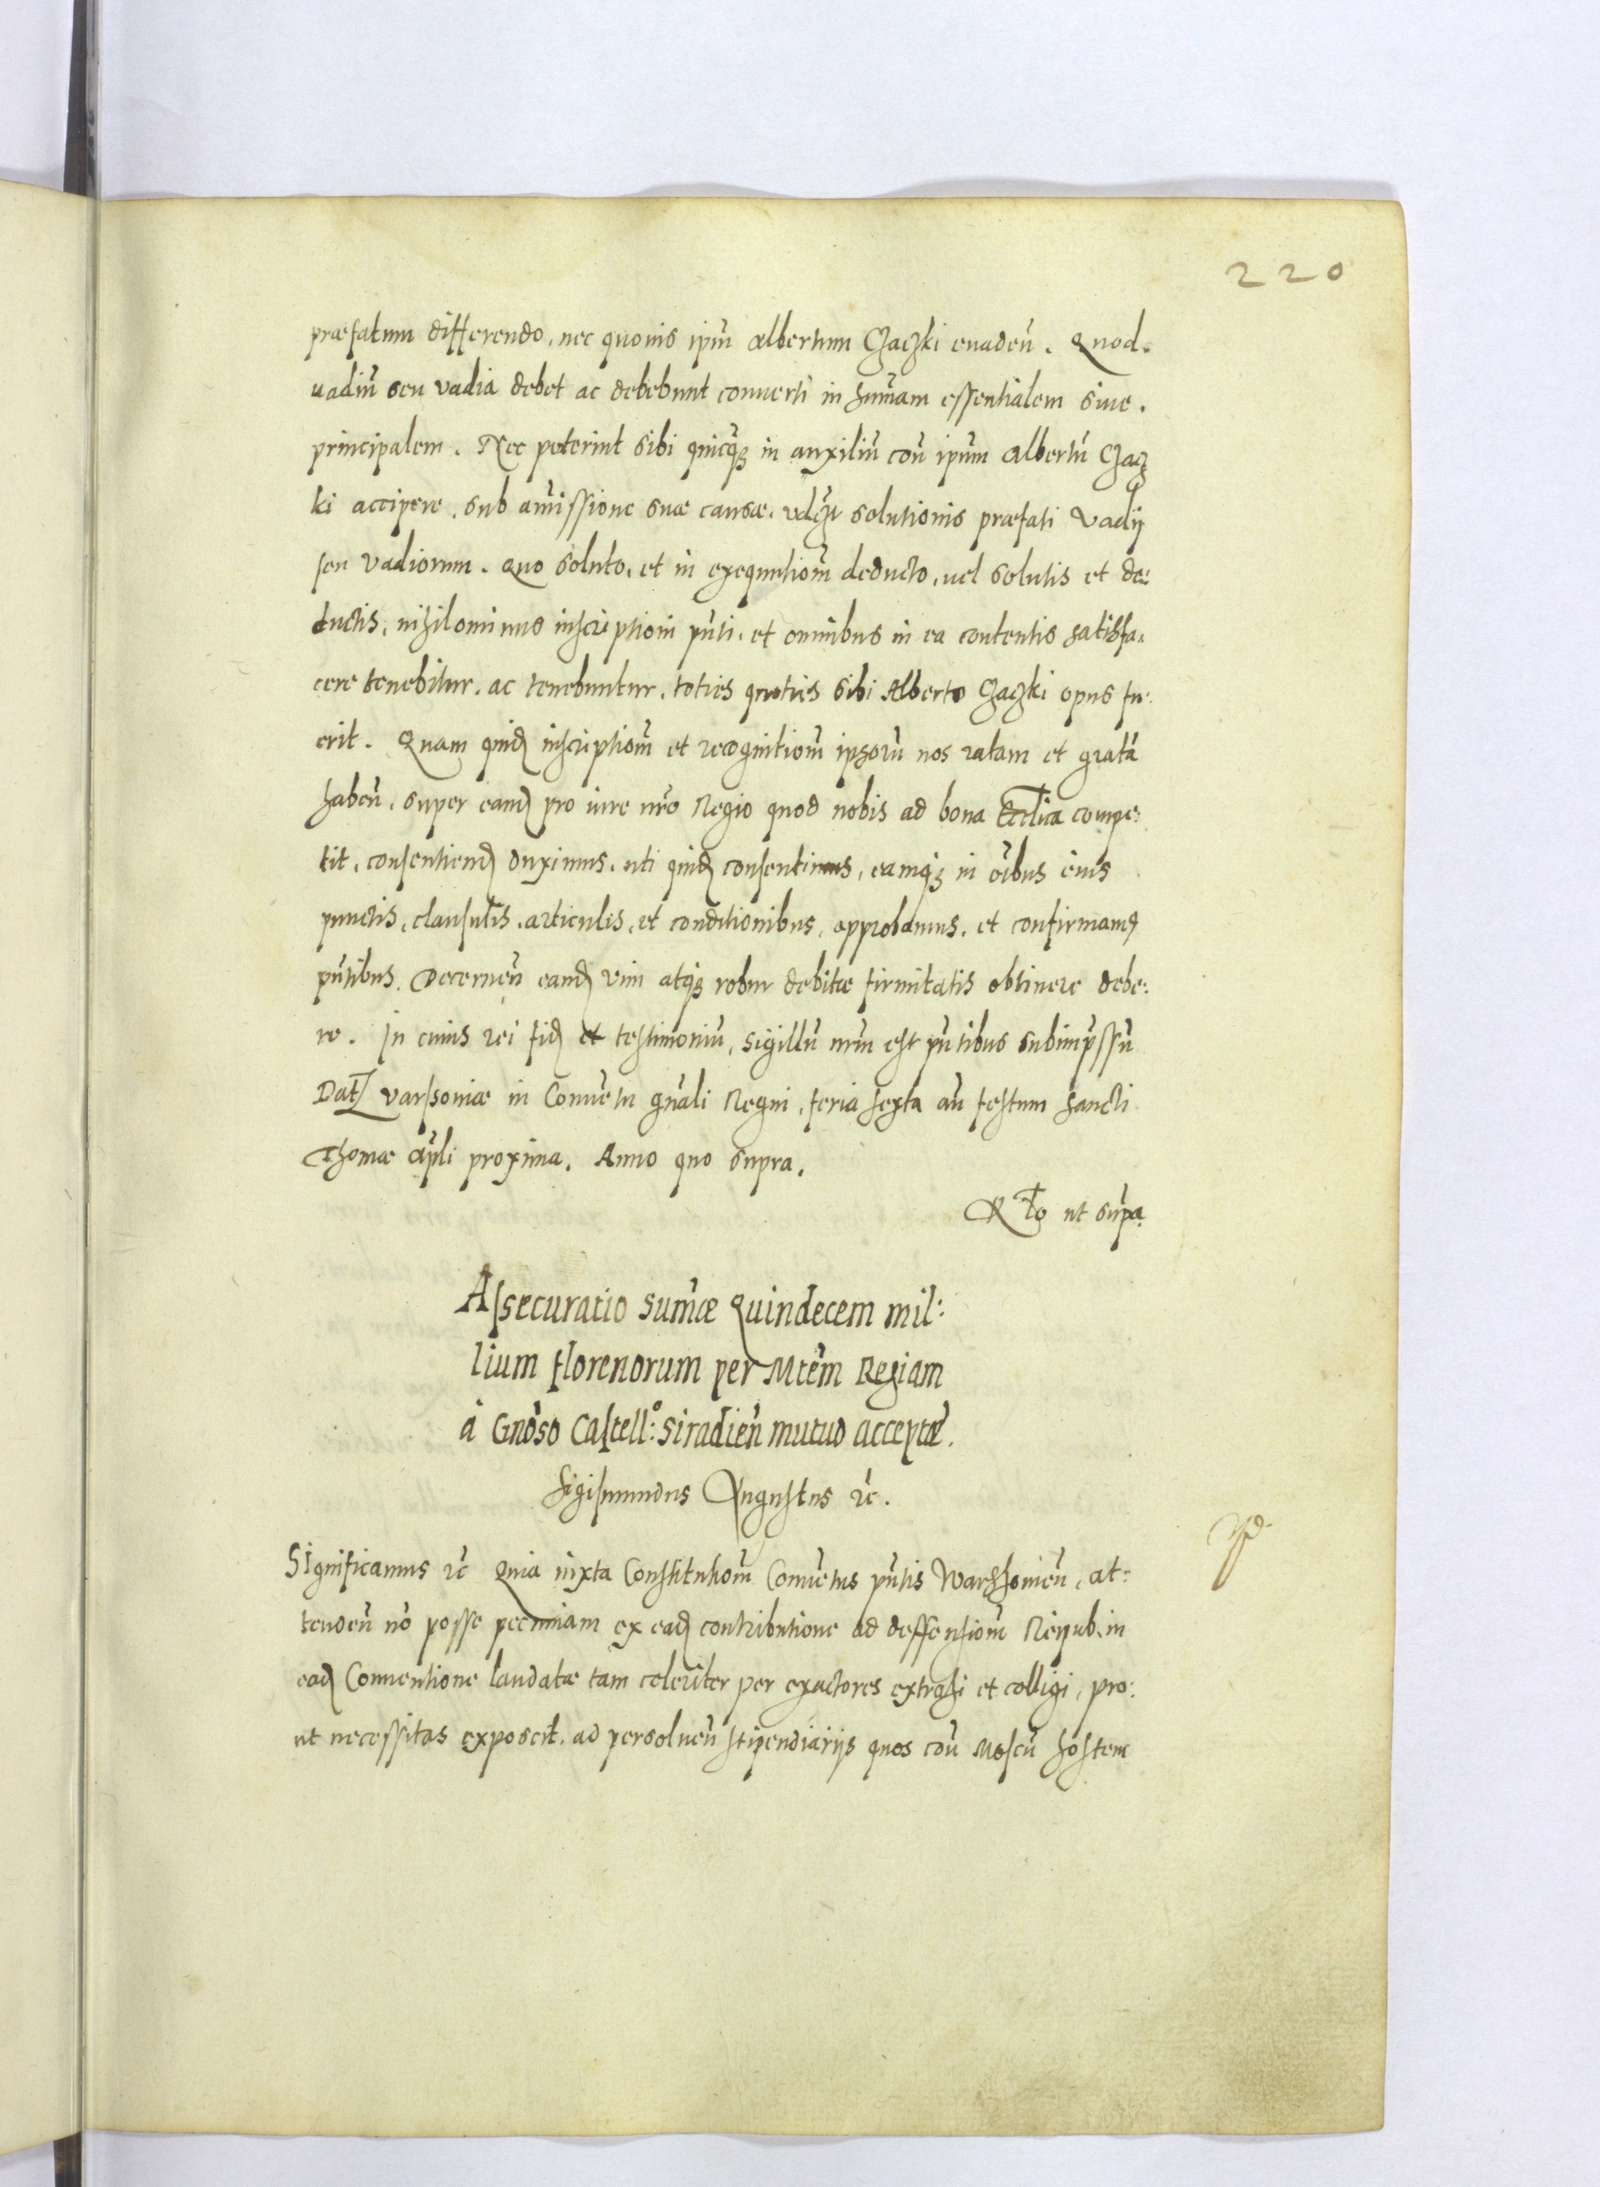 220
praefatum differendo, nec quouis ipm̃ Albertum Czaczki euadeñ. Quod
uadiũ seu vadia debet ac debebunt conuerti in sum̃am essentialem siue
principalem. Nec poterint sibi quicq̃ in auxiliũ coñ ipsum Albertũ Czacz
ki accipere, sub amissione suae causae, solutionis praefati Vadij
seu Vadiorum. Quo soluto, et in exequutiom̃ deducto, uel solutis et de:
ductis, nihilominus inscriptioni pñti, et omnibus in ea contentis satisfa:
cere tenebitur, ac tenebuntur, toties quoties sibi Alberto Czaczki opus fu:
erit. Quam quid inscriptiom̃ et recognitiom̃ ipsorũ nos ratam et gratã
habeñ, super eand pro iure nrõ Regio quod nobis ad bona Ecclica compe:
tit, consentiend duximus, uti quid consentimus, eamq̃ in oĩbus eius
punctis, clausulis, articulis, et conditionibus, approbamus, et confirmam9
pñtibus. Decerneñ eand vim atq̃ robur debitae firmitatis obtinere debe:
re. In cuius rei fid et testimoniũ, sigillũ nrm̃ est pñtibus subimp̃ssũ
Dat Varsoniae in Conuẽtu gñali Regni, feria sexta añ festum sancti
Thomae ap̃li proxima. Anno quo supra.
R to ut sup̃a
Assecuratio sum̃ae Quindecem mil:
lium florenorum per Mtem̃ Regiam
à Gnõso Castell:o Siradieñ mutuo acceptae.
Sigismundus Augustus rc̃.
Significamus rc̃ Quia iuxta Constitutiom̃ Conuẽtus pñtis Warssouieñ, at:
tendeñ nõ posse pecuniam ex ead contributione ad deffensiom̃ Reipub. in
ead Conuentione laudatae tam celeriter per exactores extrahi et colligi, pro:
ut necessitas exposcit, ad persolueñ stipendiarijs quos coñ Moscũ hostem